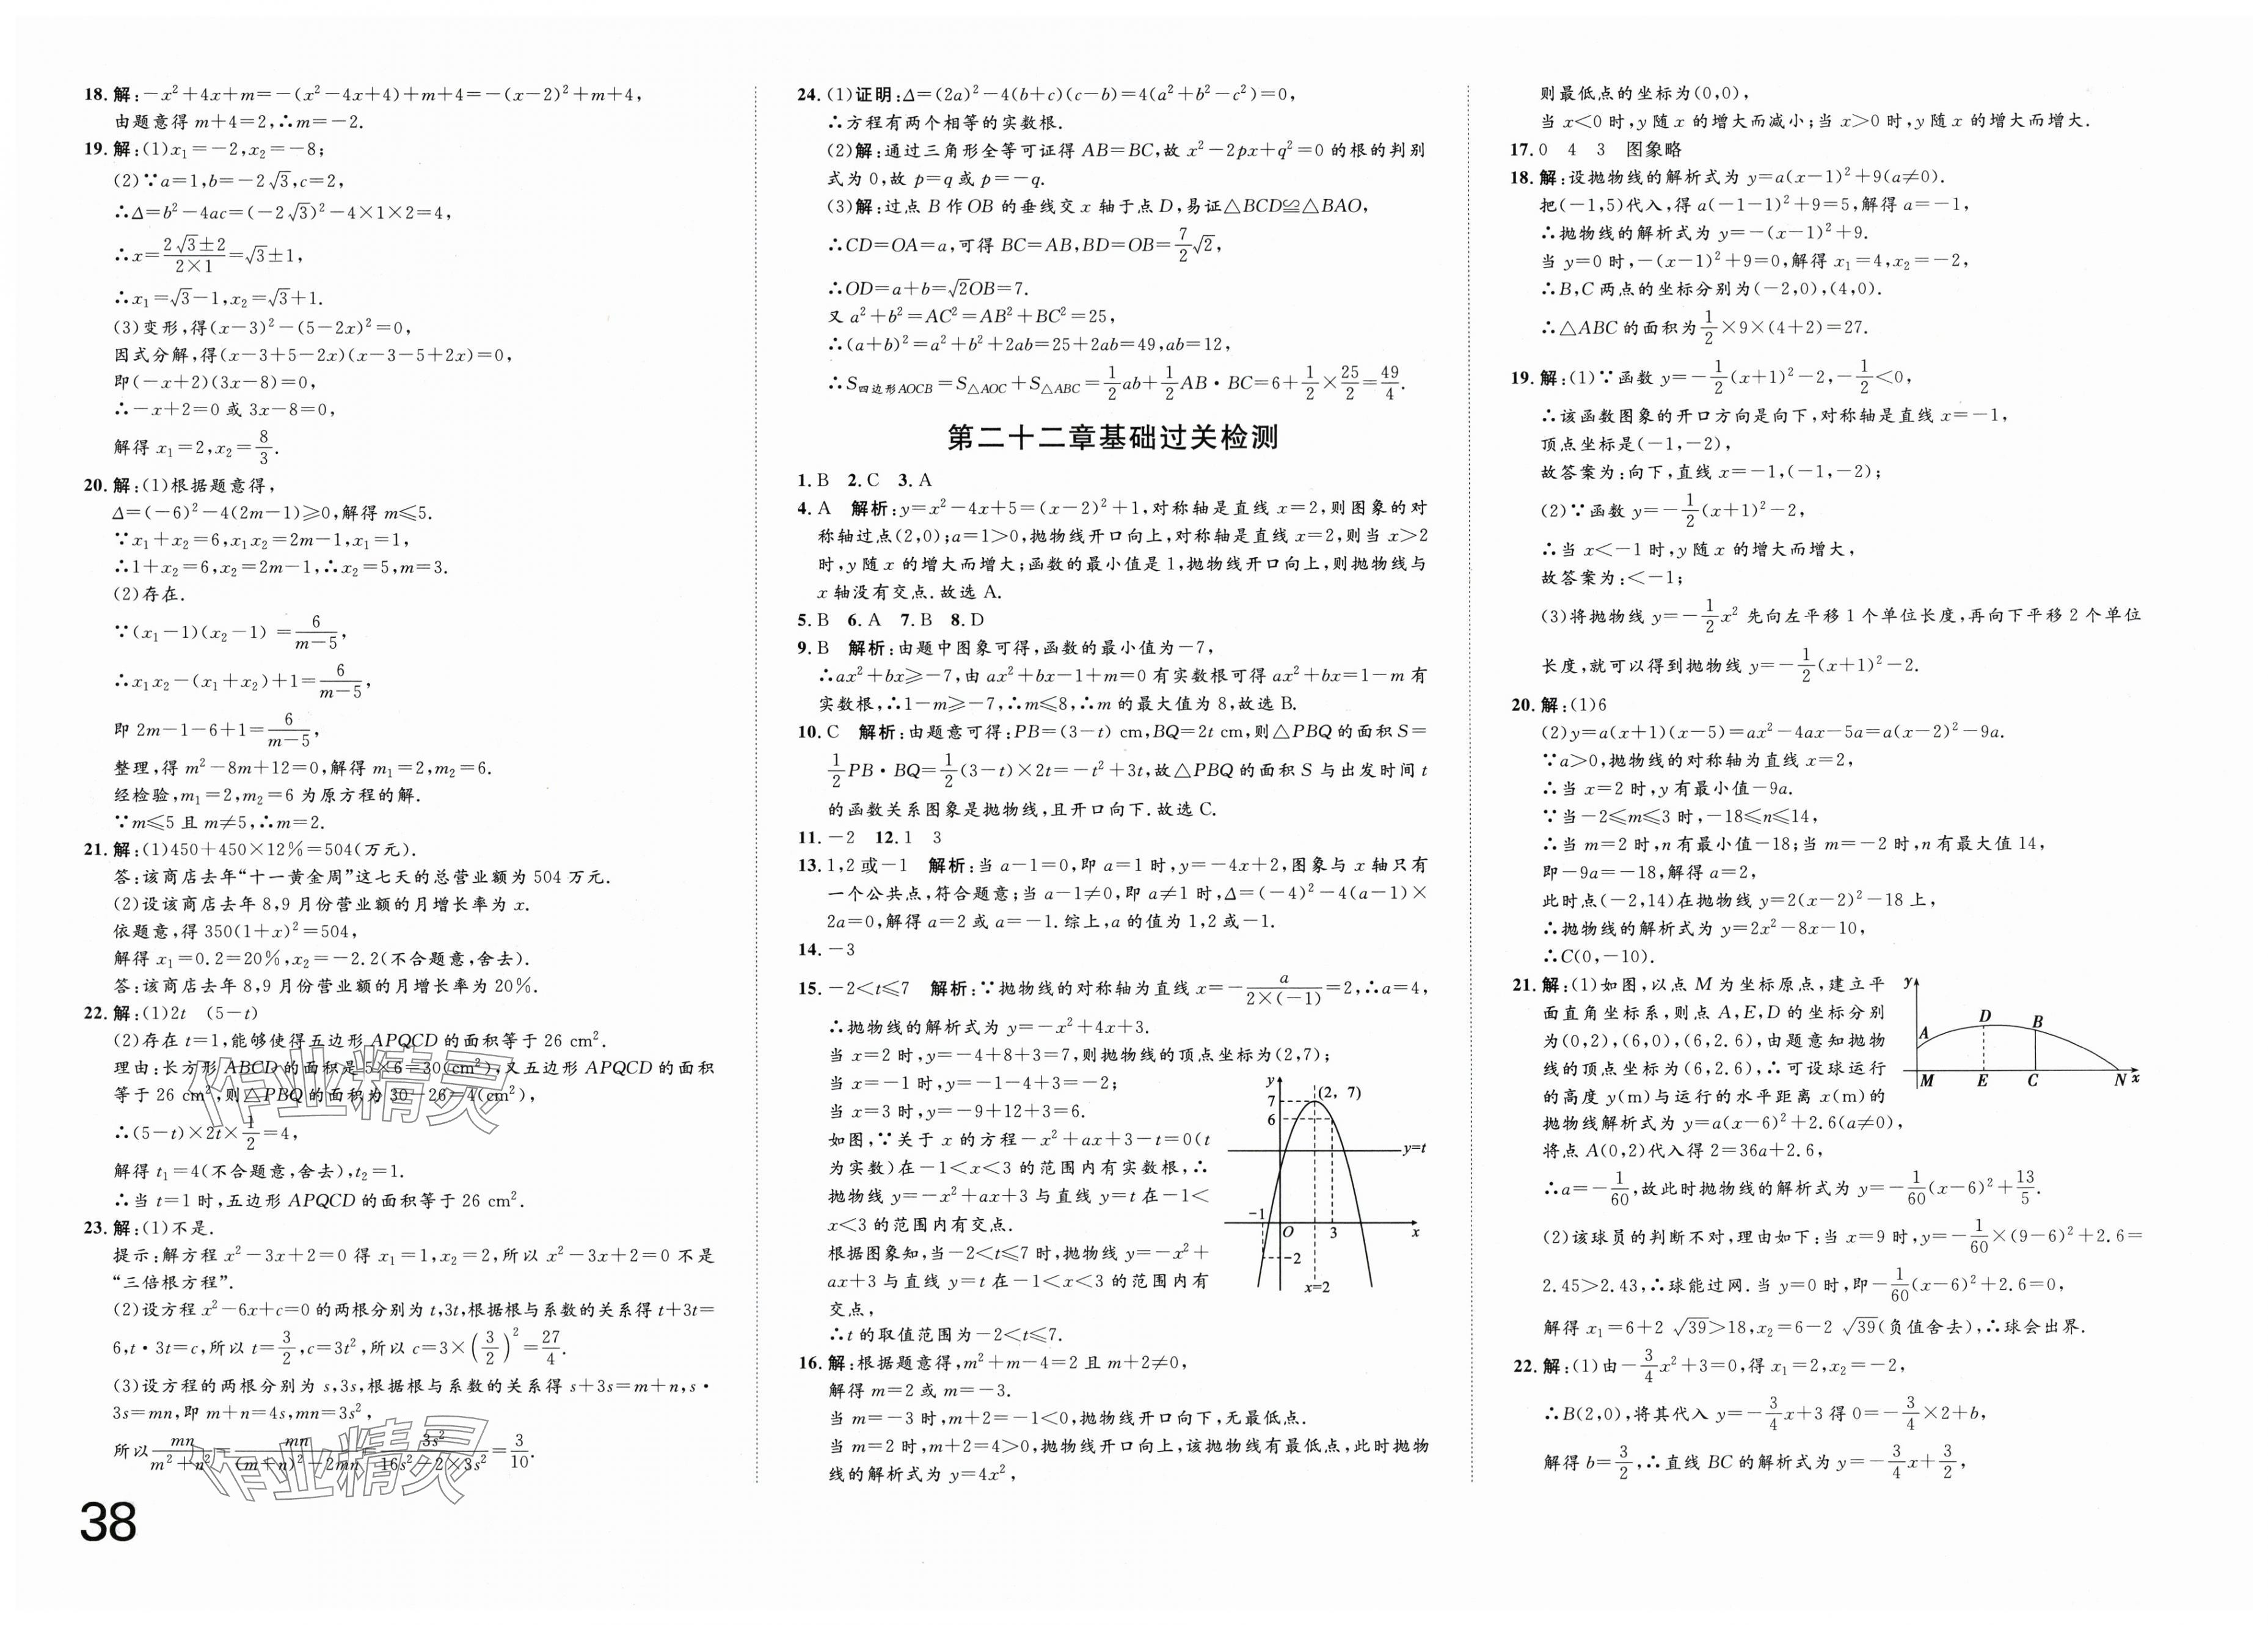 18.解:－x²＋4x＋m＝－(x²－4x＋4)＋m＋4＝－(x－2)²＋m＋4,
由题意得 m＋4＝2,∴m＝－2.
19.解:(1)x₁＝－2,x₂＝－8;
(2)∵a＝1,b＝－2√3,c＝2,
∴Δ＝b²－4ac＝(－2√3)²－4×1×2＝4,
∴x＝(2√3±2)/(2×1)＝√3±1,
∴x₁＝√3－1,x₂＝√3＋1.
(3)变形,得(x－3)²－(5－2x)²＝0,
因式分解,得(x－3＋5－2x)(x－3－5＋2x)＝0,
即(－x＋2)(3x－8)＝0,
∴－x＋2＝0 或 3x－8＝0,
解得 x₁＝2,x₂＝8/3.
20.解:(1)根据题意得,
Δ＝(－6)²－4(2m－1)⩾0,解得 m⩽5.
∵x₁＋x₂＝6,x₁x₂＝2m－1,x₁＝1,
∴1＋x₂＝6,x₂＝2m－1,∴x₂＝5,m＝3.
(2)存在.
∵(x₁－1)(x₂－1)＝6/(m－5),
∴x₁x₂－(x₁＋x₂)＋1＝6/(m－5),
即 2m－1－6＋1＝6/(m－5),
整理,得 m²－8m＋12＝0,解得 m₁＝2,m₂＝6.
经检验,m₁＝2,m₂＝6 为原方程的解.
∵m⩽5 且 m≠5,∴m＝2.
21.解:(1)450＋450×12%＝504(万元).
答:该商店去年“十一黄金周”这七天的总营业额为 504 万元.
(2)设该商店去年 8,9 月份营业额的月增长率为 x.
依题意,得 350(1＋x)²＝504,
解得 x₁＝0.2＝20%,x₂＝－2.2(不合题意,舍去).
答:该商店去年 8,9 月份营业额的月增长率为 20%.
22.解:(1)2t (5－t)
(2)存在 t＝1,能够使得五边形 APQCD 的面积等于 26 cm².
理由:长方形 ABCD 的面积是 5×6＝30(cm²),又五边形 APQCD 的面积
等于 26 cm²,则△PBQ 的面积为 30－26＝4(cm²),
∴(5－t)×2t×1/2＝4,
解得 t₁＝4(不合题意,舍去),t₂＝1.
∴当 t＝1 时,五边形 APQCD 的面积等于 26 cm².
23.解:(1)不是.
提示:解方程 x²－3x＋2＝0 得 x₁＝1,x₂＝2,所以 x²－3x＋2＝0 不是
“三倍根方程”.
(2)设方程 x²－6x＋c＝0 的两根分别为 t,3t,根据根与系数的关系得 t＋3t＝
6,t·3t＝c,所以 t＝3/2,c＝3t²,所以 c＝3×(3/2)²＝27/4.
(3)设方程的两根分别为 s,3s,根据根与系数的关系得 s＋3s＝m＋n,s·
3s＝mn,即 m＋n＝4s,mn＝3s²,
所以 mn/(m²＋n²)＝mn/((m＋n)²－2mn)＝3s²/(16s²－2×3s²)＝3/10.
作业精灵
作业精灵
38
24.(1)证明:Δ＝(2a)²－4(b＋c)(c－b)＝4(a²＋b²－c²)＝0,
∴方程有两个相等的实数根.
(2)解:通过三角形全等可证得 AB＝BC,故 x²－2px＋q²＝0 的根的判别
式为 0,故 p＝q 或 p＝－q.
(3)解:过点 B 作 OB 的垂线交 x 轴于点 D,易证△BCD≌△BAO,
∴CD＝OA＝a,可得 BC＝AB,BD＝OB＝7/2√2,
∴OD＝a＋b＝√2OB＝7.
又 a²＋b²＝AC²＝AB²＋BC²＝25,
∴(a＋b)²＝a²＋b²＋2ab＝25＋2ab＝49,ab＝12,
∴S四边形AOCB＝S△AOC＋S△ABC＝1/2ab＋1/2AB·BC＝6＋1/2×25/2＝49/4.
第二十二章基础过关检测
1.B 2.C 3.A
4.A 解析:y＝x²－4x＋5＝(x－2)²＋1,对称轴是直线 x＝2,则图象的对
称轴过点(2,0);a＝1＞0,抛物线开口向上,对称轴是直线 x＝2,则当 x＞2
时,y 随 x 的增大而增大;函数的最小值是 1,抛物线开口向上,则抛物线与
x 轴没有交点.故选 A.
5.B 6.A 7.B 8.D
9.B 解析:由题中图象可得,函数的最小值为－7,
∴ax²＋bx⩾－7,由 ax²＋bx－1＋m＝0 有实数根可得 ax²＋bx＝1－m 有
实数根,∴1－m⩾－7,∴m⩽8,∴m 的最大值为 8,故选 B.
10.C 解析:由题意可得:PB＝(3－t) cm,BQ＝2t cm,则△PBQ 的面积 S＝
1/2PB·BQ＝1/2(3－t)×2t＝－t²＋3t,故△PBQ 的面积 S 与出发时间 t
的函数关系图象是抛物线,且开口向下.故选 C.
11.－2 12.1 3
13.1,2 或－1 解析:当 a－1＝0,即 a＝1 时,y＝－4x＋2,图象与 x 轴只有
一个公共点,符合题意;当 a－1≠0,即 a≠1 时,Δ＝(－4)²－4(a－1)×
2a＝0,解得 a＝2 或 a＝－1.综上,a 的值为 1,2 或－1.
14.－3
15.－2＜t⩽7 解析:∵抛物线的对称轴为直线 x＝－a/(2×(－1))＝2,∴a＝4,
∴抛物线的解析式为 y＝－x²＋4x＋3.
当 x＝2 时,y＝－4＋8＋3＝7,则抛物线的顶点坐标为(2,7);
当 x＝－1 时,y＝－1－4＋3＝－2;
当 x＝3 时,y＝－9＋12＋3＝6.
如图,∵关于 x 的方程－x²＋ax＋3－t＝0(t
为实数)在－1＜x＜3 的范围内有实数根,∴
抛物线 y＝－x²＋ax＋3 与直线 y＝t 在－1＜
x＜3 的范围内有交点.
根据图象知,当－2＜t⩽7 时,抛物线 y＝－x²＋
ax＋3 与直线 y＝t 在－1＜x＜3 的范围内有
交点,
∴t 的取值范围为－2＜t⩽7.
y
7
(2, 7)
6
y=t
－1
O
3
x
－2
x=2
16.解:根据题意得,m²＋m－4＝2 且 m＋2≠0,
解得 m＝2 或 m＝－3.
当 m＝－3 时,m＋2＝－1＜0,抛物线开口向下,无最低点.
当 m＝2 时,m＋2＝4＞0,抛物线开口向上,该抛物线有最低点,此时抛物
线的解析式为 y＝4x²,
则最低点的坐标为(0,0),
当 x＜0 时,y 随 x 的增大而减小;当 x＞0 时,y 随 x 的增大而增大.
17.0 4 3 图象略
18.解:设抛物线的解析式为 y＝a(x－1)²＋9(a≠0).
把(－1,5)代入,得 a(－1－1)²＋9＝5,解得 a＝－1,
∴抛物线的解析式为 y＝－(x－1)²＋9.
当 y＝0 时,－(x－1)²＋9＝0,解得 x₁＝4,x₂＝－2,
∴B,C 两点的坐标分别为(－2,0),(4,0).
∴△ABC 的面积为1/2×9×(4＋2)＝27.
19.解:(1)∵函数 y＝－1/2(x＋1)²－2,－1/2＜0,
∴该函数图象的开口方向是向下,对称轴是直线 x＝－1,
顶点坐标是(－1,－2),
故答案为:向下,直线 x＝－1,(－1,－2);
(2)∵函数 y＝－1/2(x＋1)²－2,
∴当 x＜－1 时,y 随 x 的增大而增大,
故答案为:＜－1;
(3)将抛物线 y＝－1/2x² 先向左平移 1 个单位长度,再向下平移 2 个单位
长度,就可以得到抛物线 y＝－1/2(x＋1)²－2.
20.解:(1)6
(2)y＝a(x＋1)(x－5)＝ax²－4ax－5a＝a(x－2)²－9a.
∵a＞0,抛物线的对称轴为直线 x＝2,
∴当 x＝2 时,y 有最小值－9a.
∵当－2⩽m⩽3 时,－18⩽n⩽14,
∴当 m＝2 时,n 有最小值－18;当 m＝－2 时,n 有最大值 14,
即－9a＝－18,解得 a＝2,
此时点(－2,14)在抛物线 y＝2(x－2)²－18 上,
∴抛物线的解析式为 y＝2x²－8x－10,
∴C(0,－10).
21.解:(1)如图,以点 M 为坐标原点,建立平
面直角坐标系,则点 A,E,D 的坐标分别
为(0,2),(6,0),(6,2.6),由题意知抛物
线的顶点坐标为(6,2.6),∴可设球运行
的高度 y(m)与运行的水平距离 x(m)的
抛物线解析式为 y＝a(x－6)²＋2.6(a≠0),
将点 A(0,2)代入得 2＝36a＋2.6,
y
A
D
B
M
E
C
N
x
∴a＝－1/60,故此时抛物线的解析式为 y＝－1/60(x－6)²＋13/5.
(2)该球员的判断不对,理由如下:当 x＝9 时,y＝－1/60×(9－6)²＋2.6＝
2.45＞2.43,∴球能过网.当 y＝0 时,即－1/60(x－6)²＋2.6＝0,
解得 x₁＝6＋2√39＞18,x₂＝6－2√39(负值舍去),∴球会出界.
22.解:(1)由－3/4x²＋3＝0,得 x₁＝2,x₂＝－2,
∴B(2,0),将其代入 y＝－3/4x＋3得 0＝－3/4×2＋b,
解得 b＝3/2,∴直线 BC 的解析式为 y＝－3/4x＋3/2,